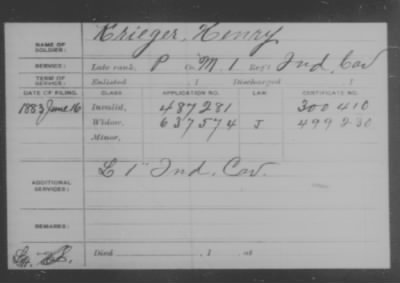 NAME OF SOLDIER: Krieger, Henry
SERVICE: Late rank, P Co. M, 1 Reg't Ind. Cav
TERM OF SERVICE: Enlisted , 1 Discharged , 1
DATE OF FILING. CLASS APPLICATION NO. LAW CERTIFICATE NO.
1883 June 16 Invalid, 487281 300410
Widow, 637574 J 499230
Minor,
ADDITIONAL SERVICES: L 1" Ind. Cav.
REMARKS:
Died , 1 , at